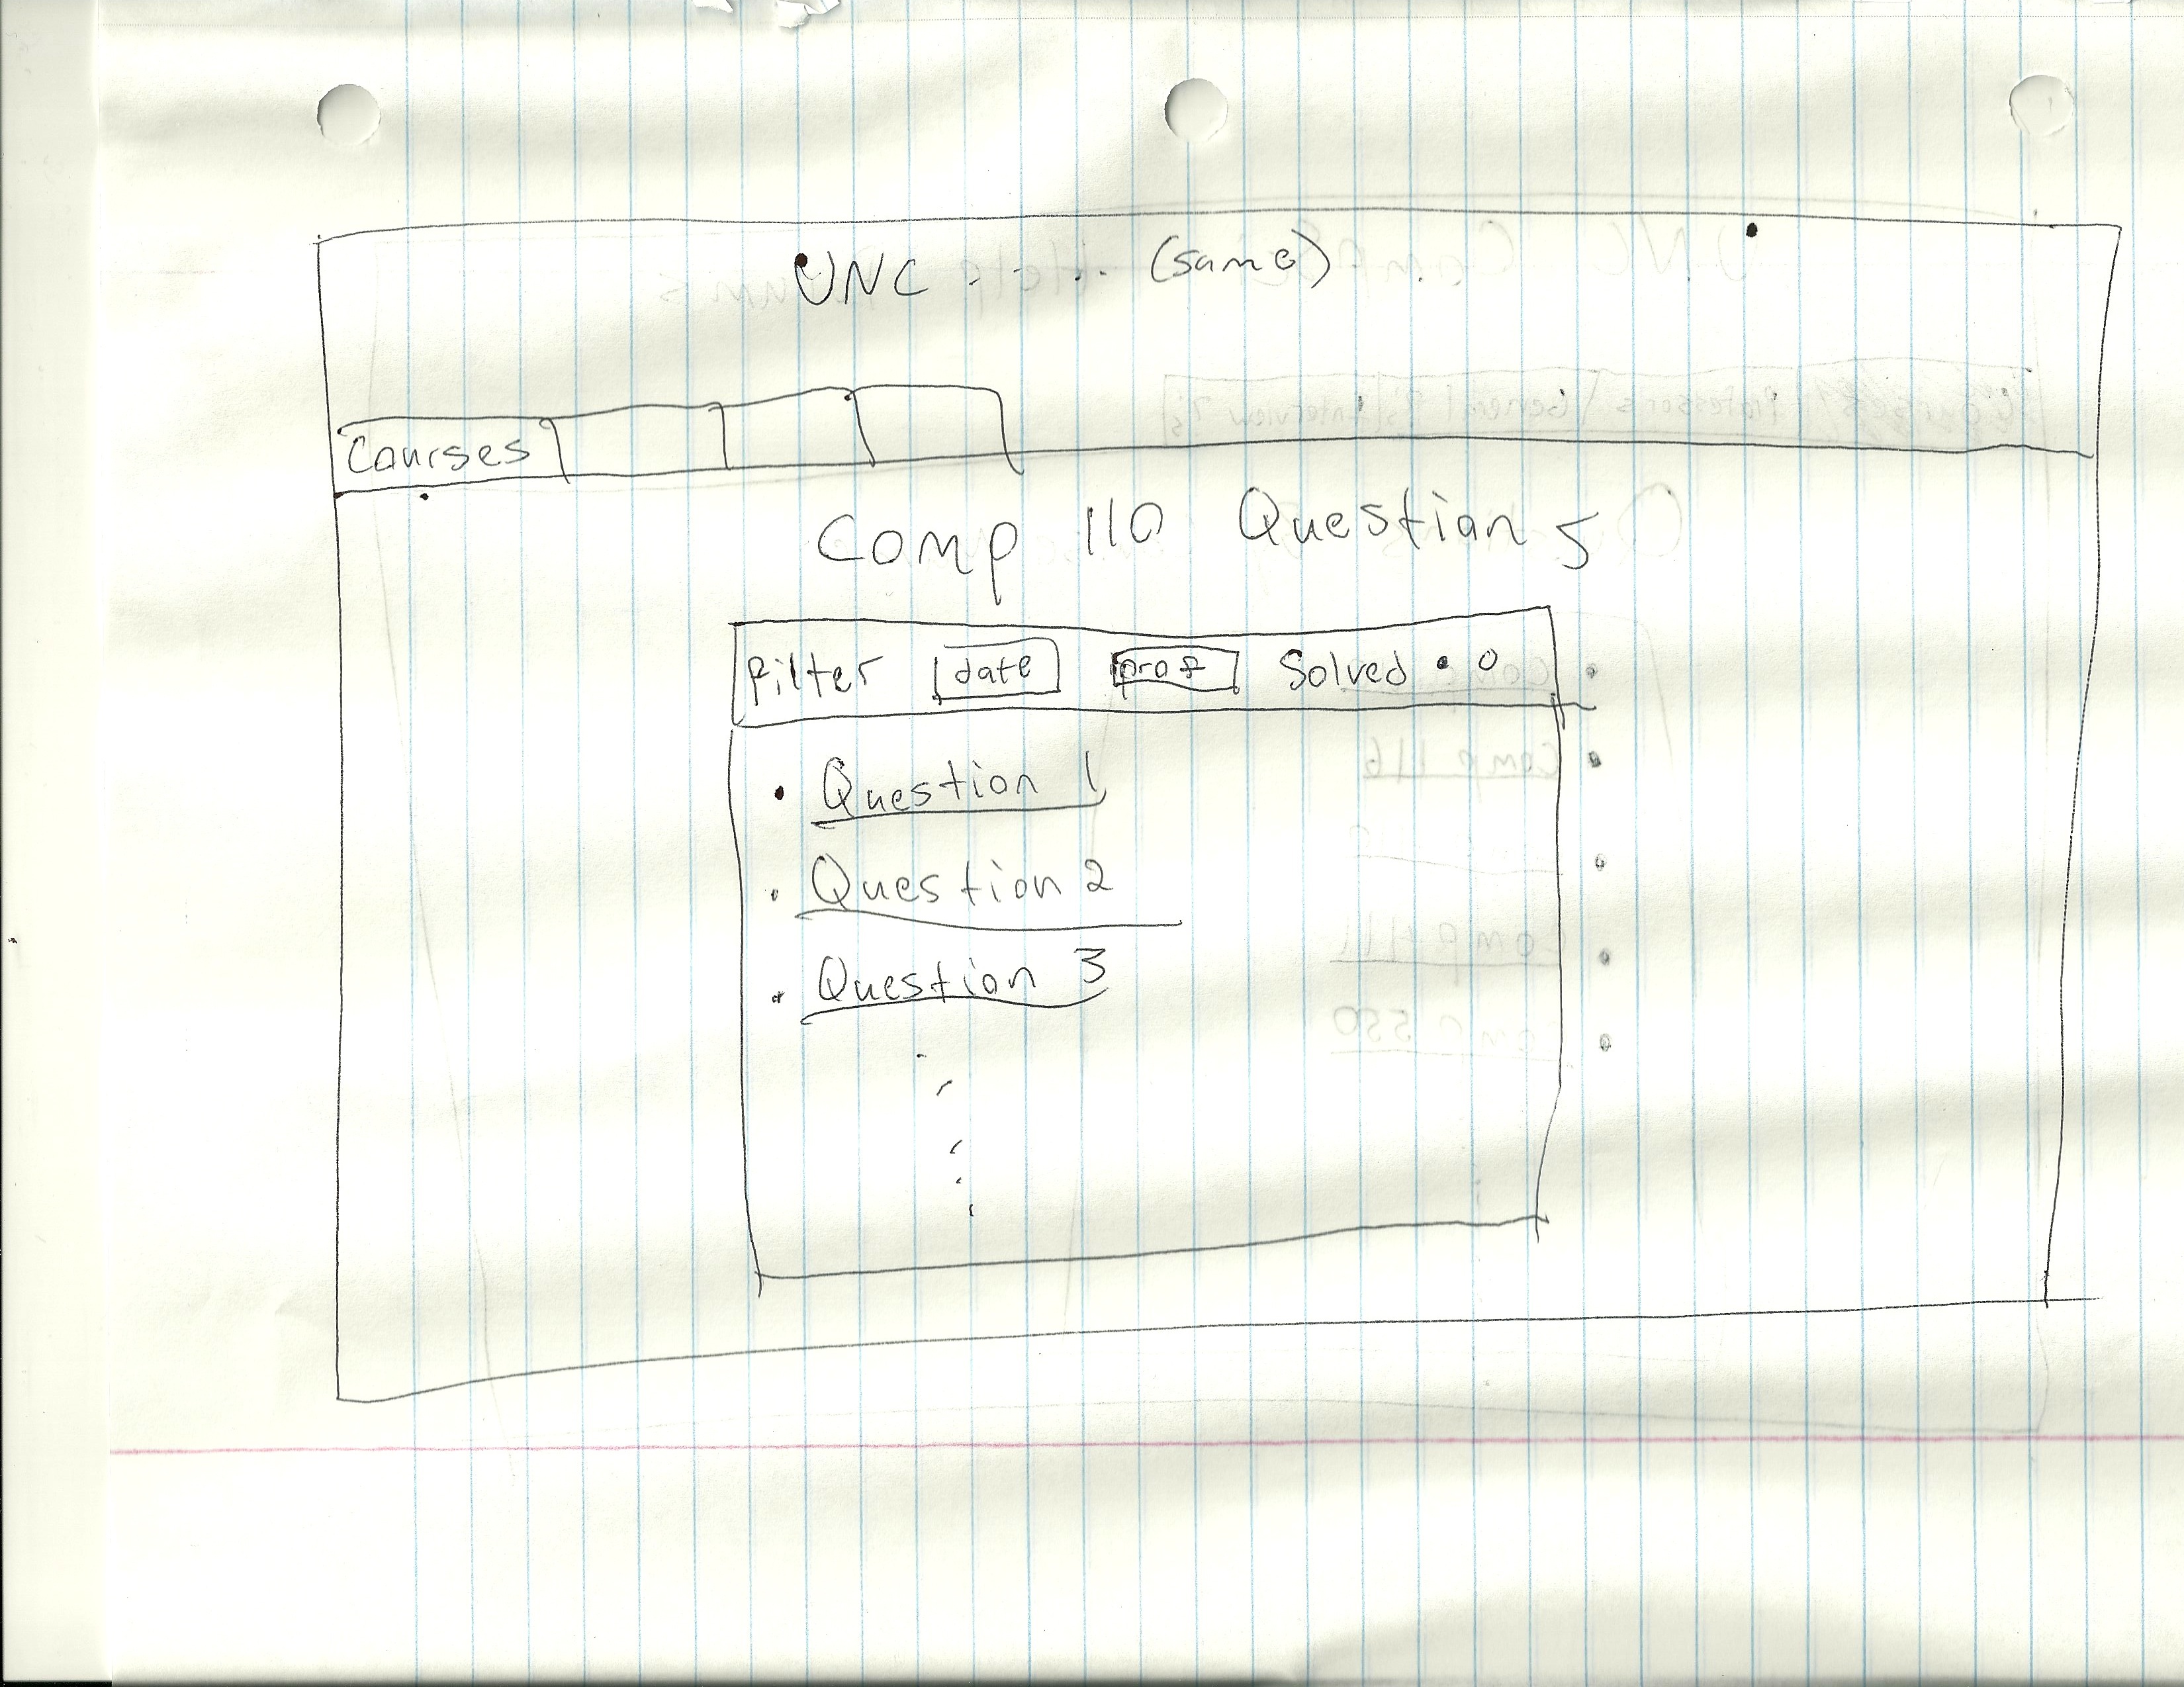 UNC - . . . (same)
Courses
Comp 110 Questions
Filter date prof Solved
• Question 1
• Question 2
• Question 3